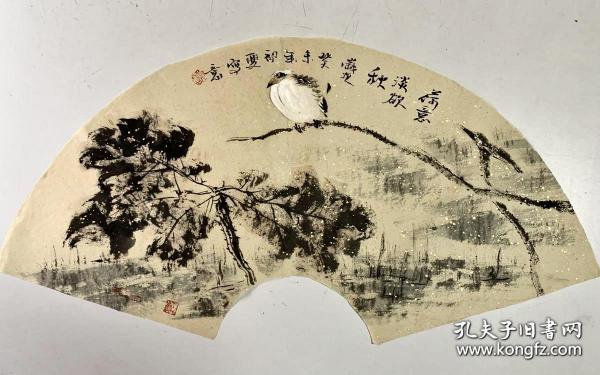 荷意
淡欲
秋
癸未年初夏写意
孔夫子旧书网
www.kongfz.com